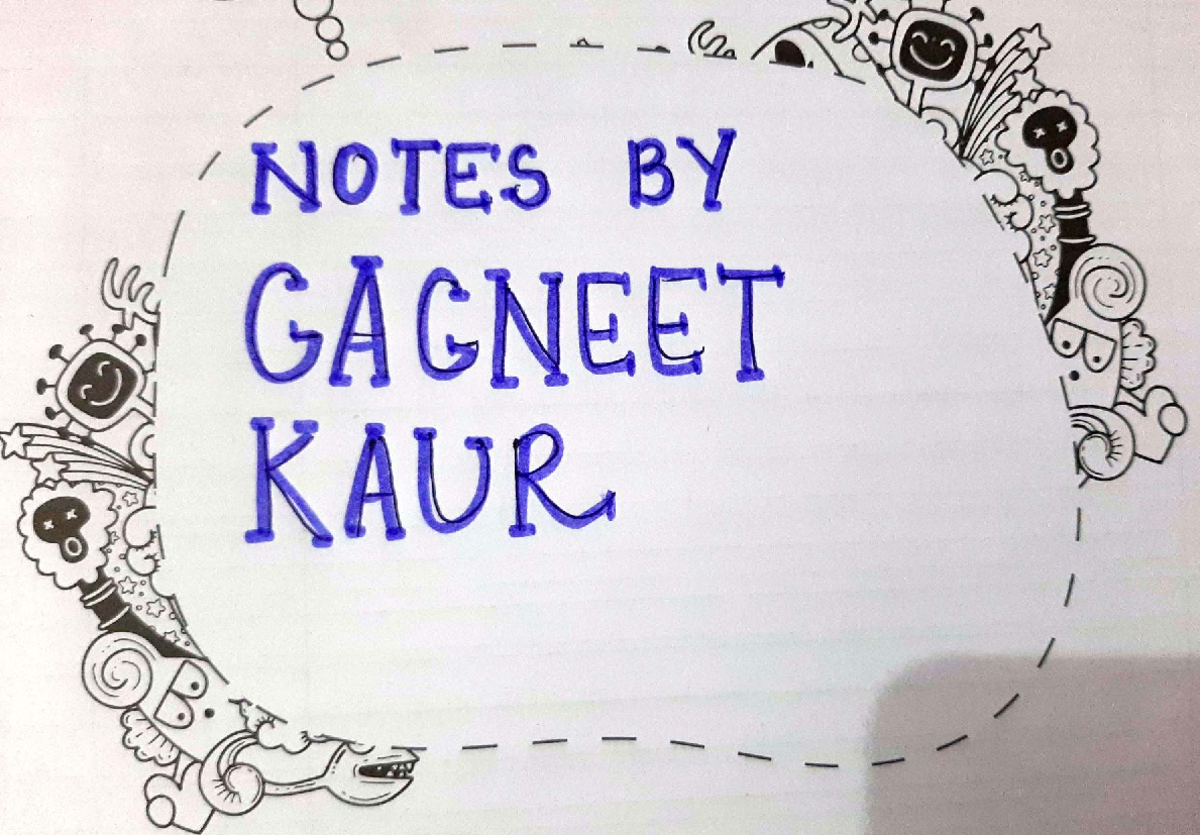 NOTES BY
GAGNEET
KAUR